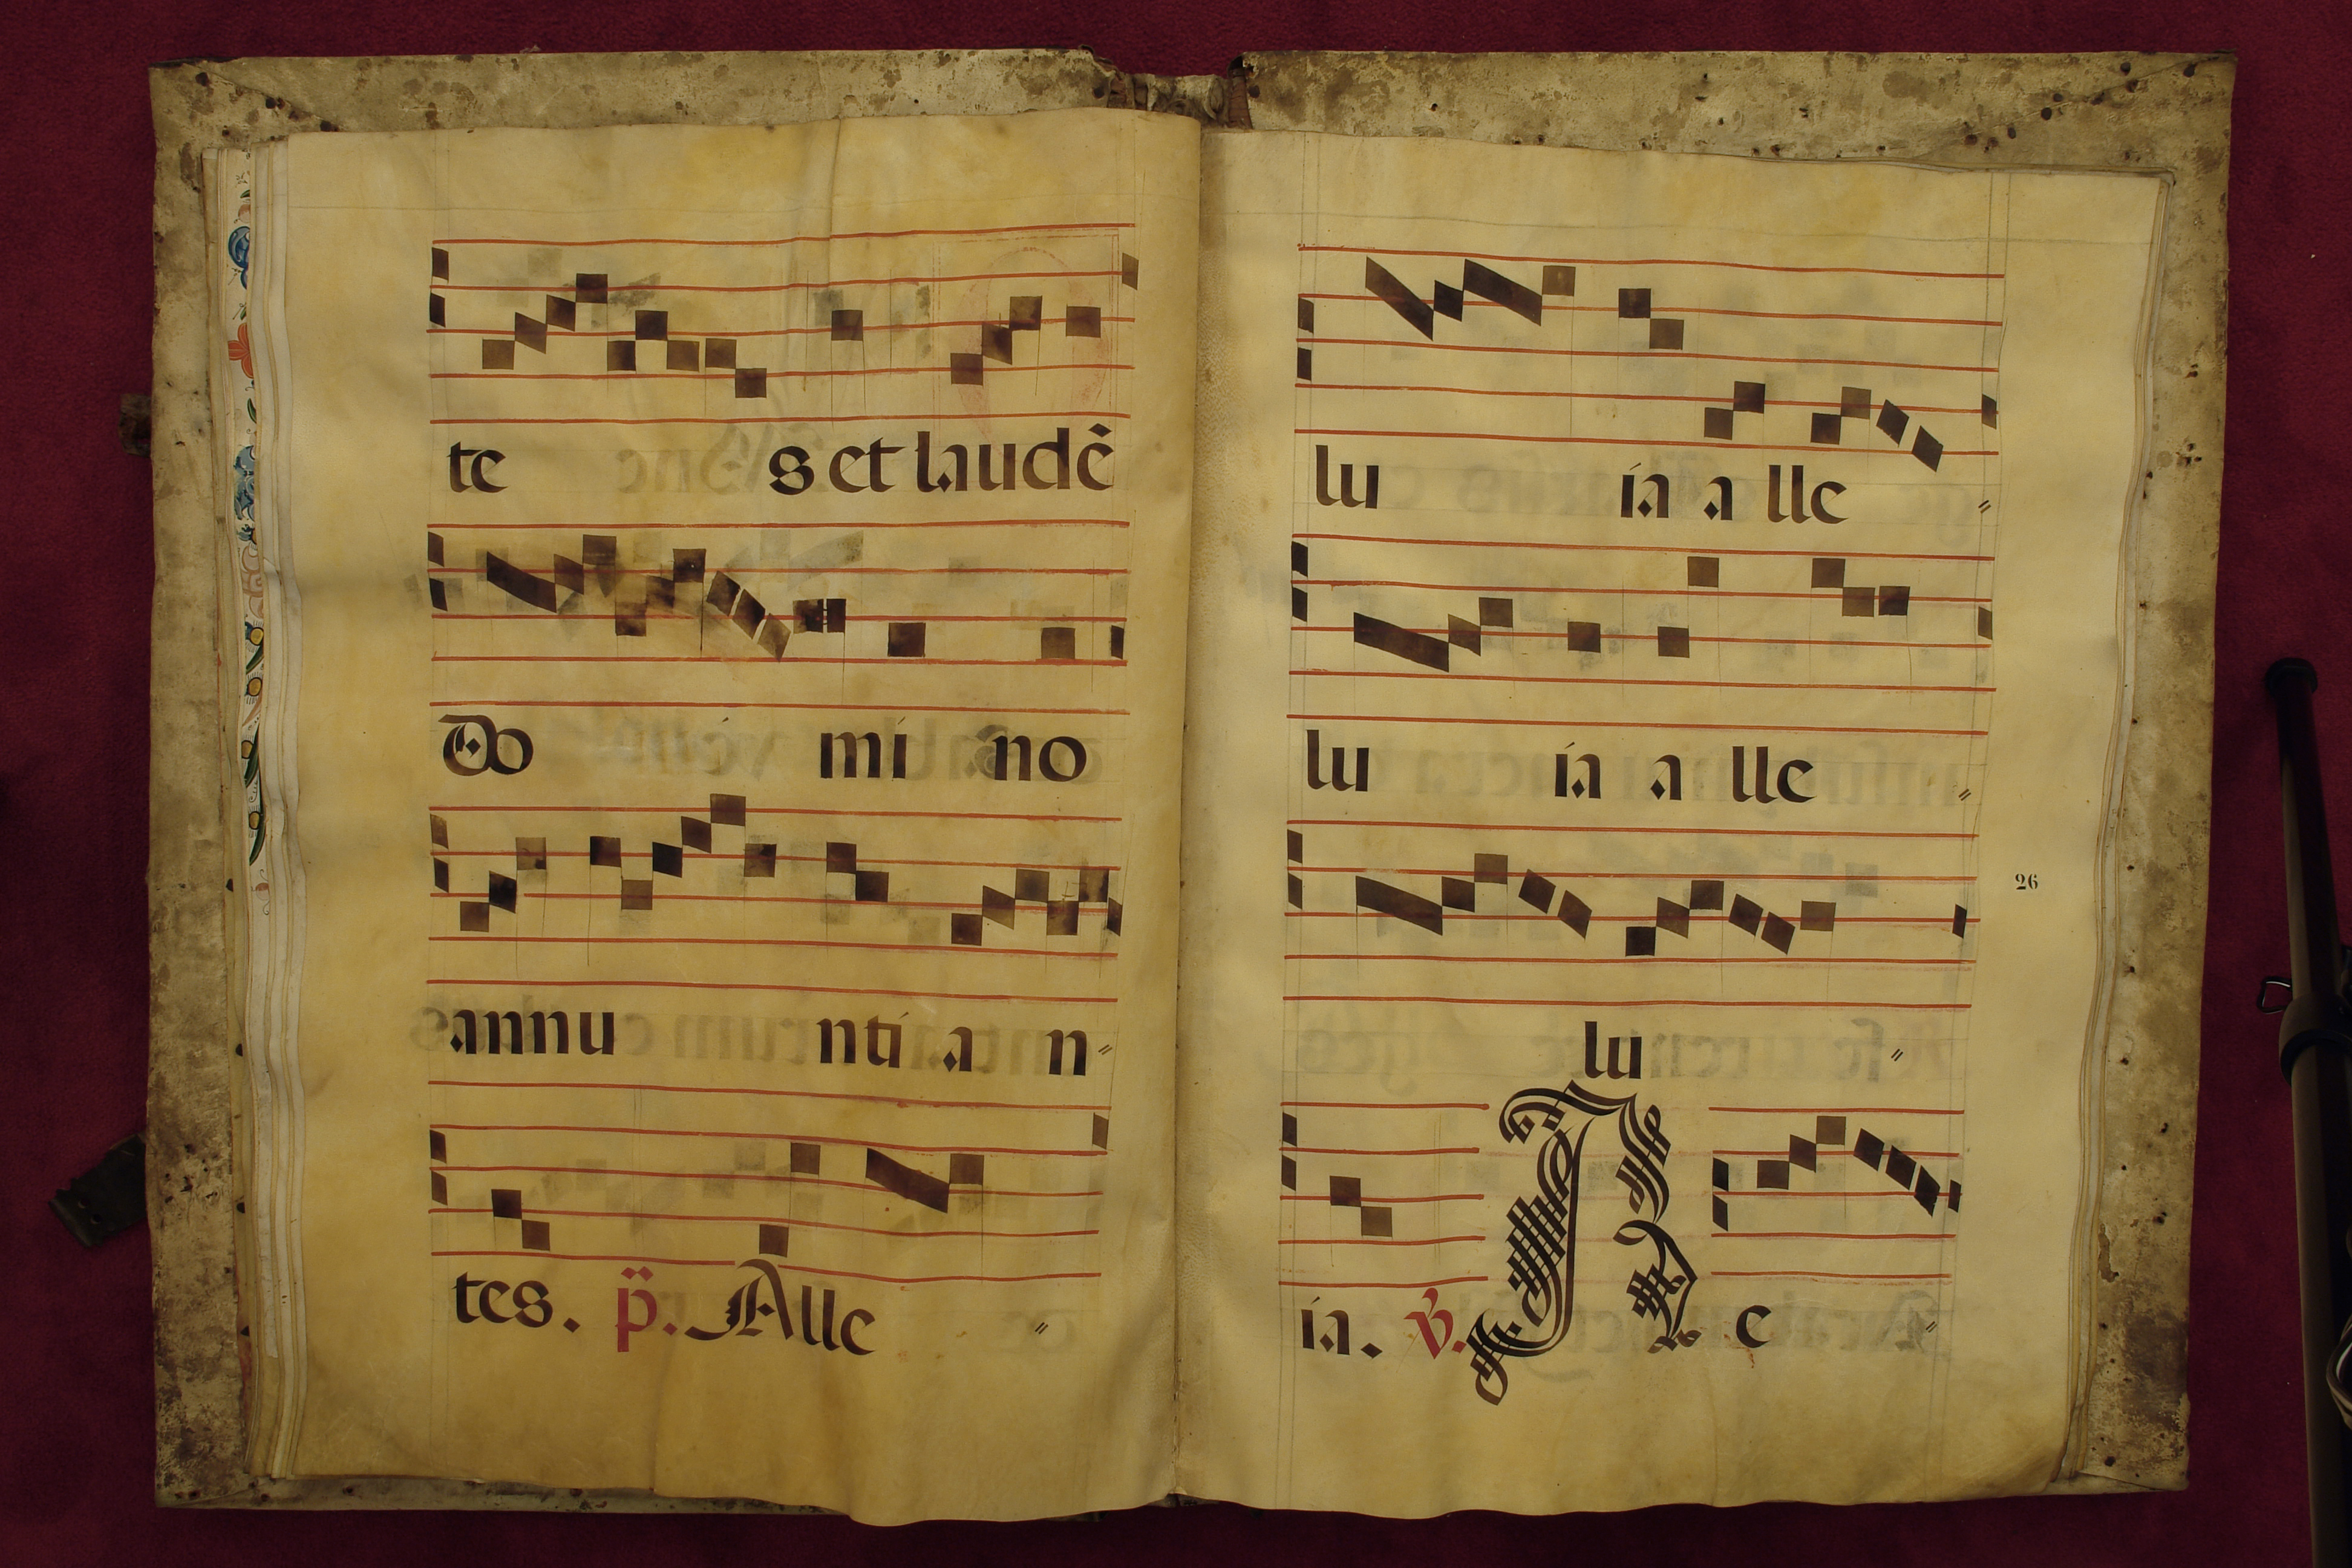 te s et laudẽ
Do mi no
annu nti a n〃
tes. p̈. Alle 〃
lu ia a lle 〃
lu ia a lle 〃
26
lu 〃
ia. v̉. A e 〃